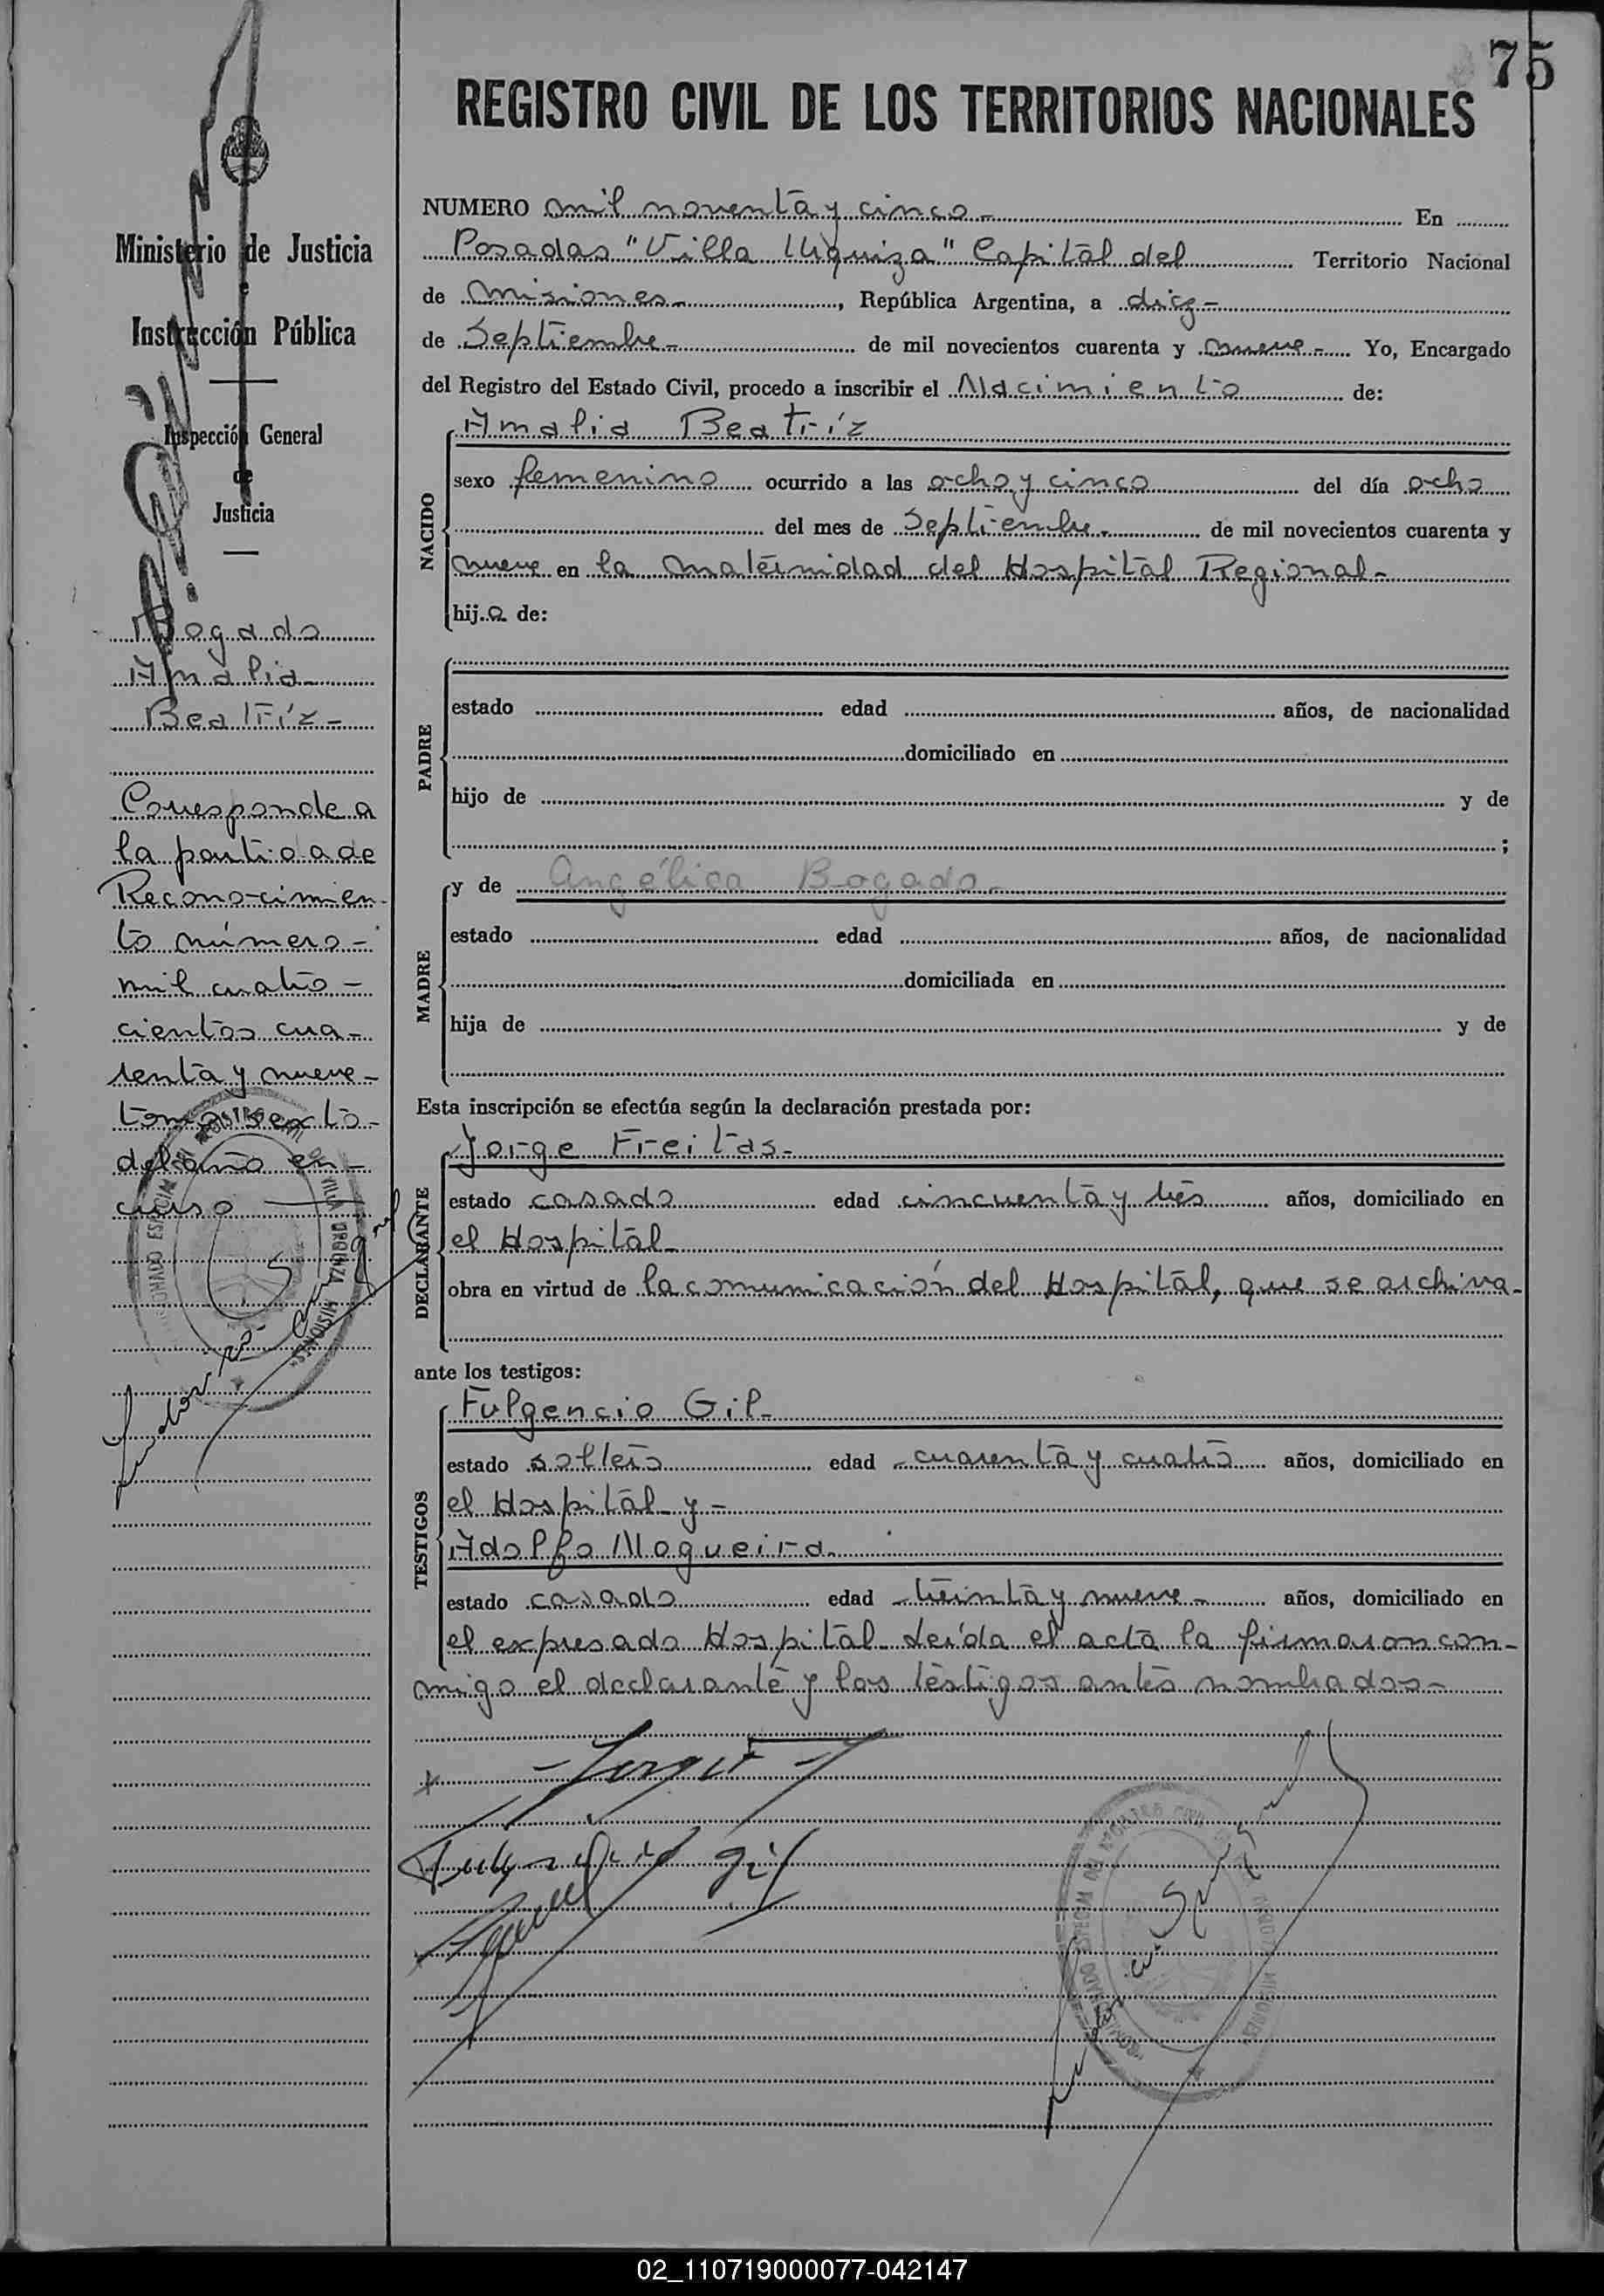 75
REGISTRO CIVIL DE LOS TERRITORIOS NACIONALES
Ministerio de Justicia
e
Instrucción Pública
Inspección General
de
Justicia
Bogado
Amalia
Beatríz-
Corresponde a
la partida de
Reconocimien-
to número-
mil cuatro-
cientos cua-
renta y nueve-
tomo sexto-
del año en-
curso
NUMERO mil noventa y cinco- En
Posadas "Villa Urquiza" Capital del Territorio Nacional
de Misiones-, República Argentina, a diez-
de Septiembre- de mil novecientos cuarenta y nueve- Yo, Encargado
del Registro del Estado Civil, procedo a inscribir el Nacimiento de:
NACIDO
Amalia Beatríz
sexo femenino ocurrido a las ocho y cinco del día ocho
del mes de Septiembre- de mil novecientos cuarenta y
nueve en la maternidad del Hospital Regional-
hija de:
PADRE
estado edad años, de nacionalidad
domiciliado en
hijo de y de
;
MADRE
y de Angélica Bogado-
estado edad años, de nacionalidad
domiciliada en
hija de y de
Esta inscripción se efectúa según la declaración prestada por:
DECLARANTE
Jorge Freitas-
estado casado edad cincuenta y tres años, domiciliado en
el Hospital-
obra en virtud de la comunicación del Hospital, que se archiva-
ante los testigos:
TESTIGOS
Fulgencio Gil-
estado soltero edad cuarenta y cuatro años, domiciliado en
el Hospital y-
Adolfo Nogueira-
estado casado edad treinta y nueve- años, domiciliado en
el expresado Hospital- Leída el acta la firmaron con-
migo el declarante y los testigos antes nombrados-
Fulgencio Gil
02_110719000077-042147